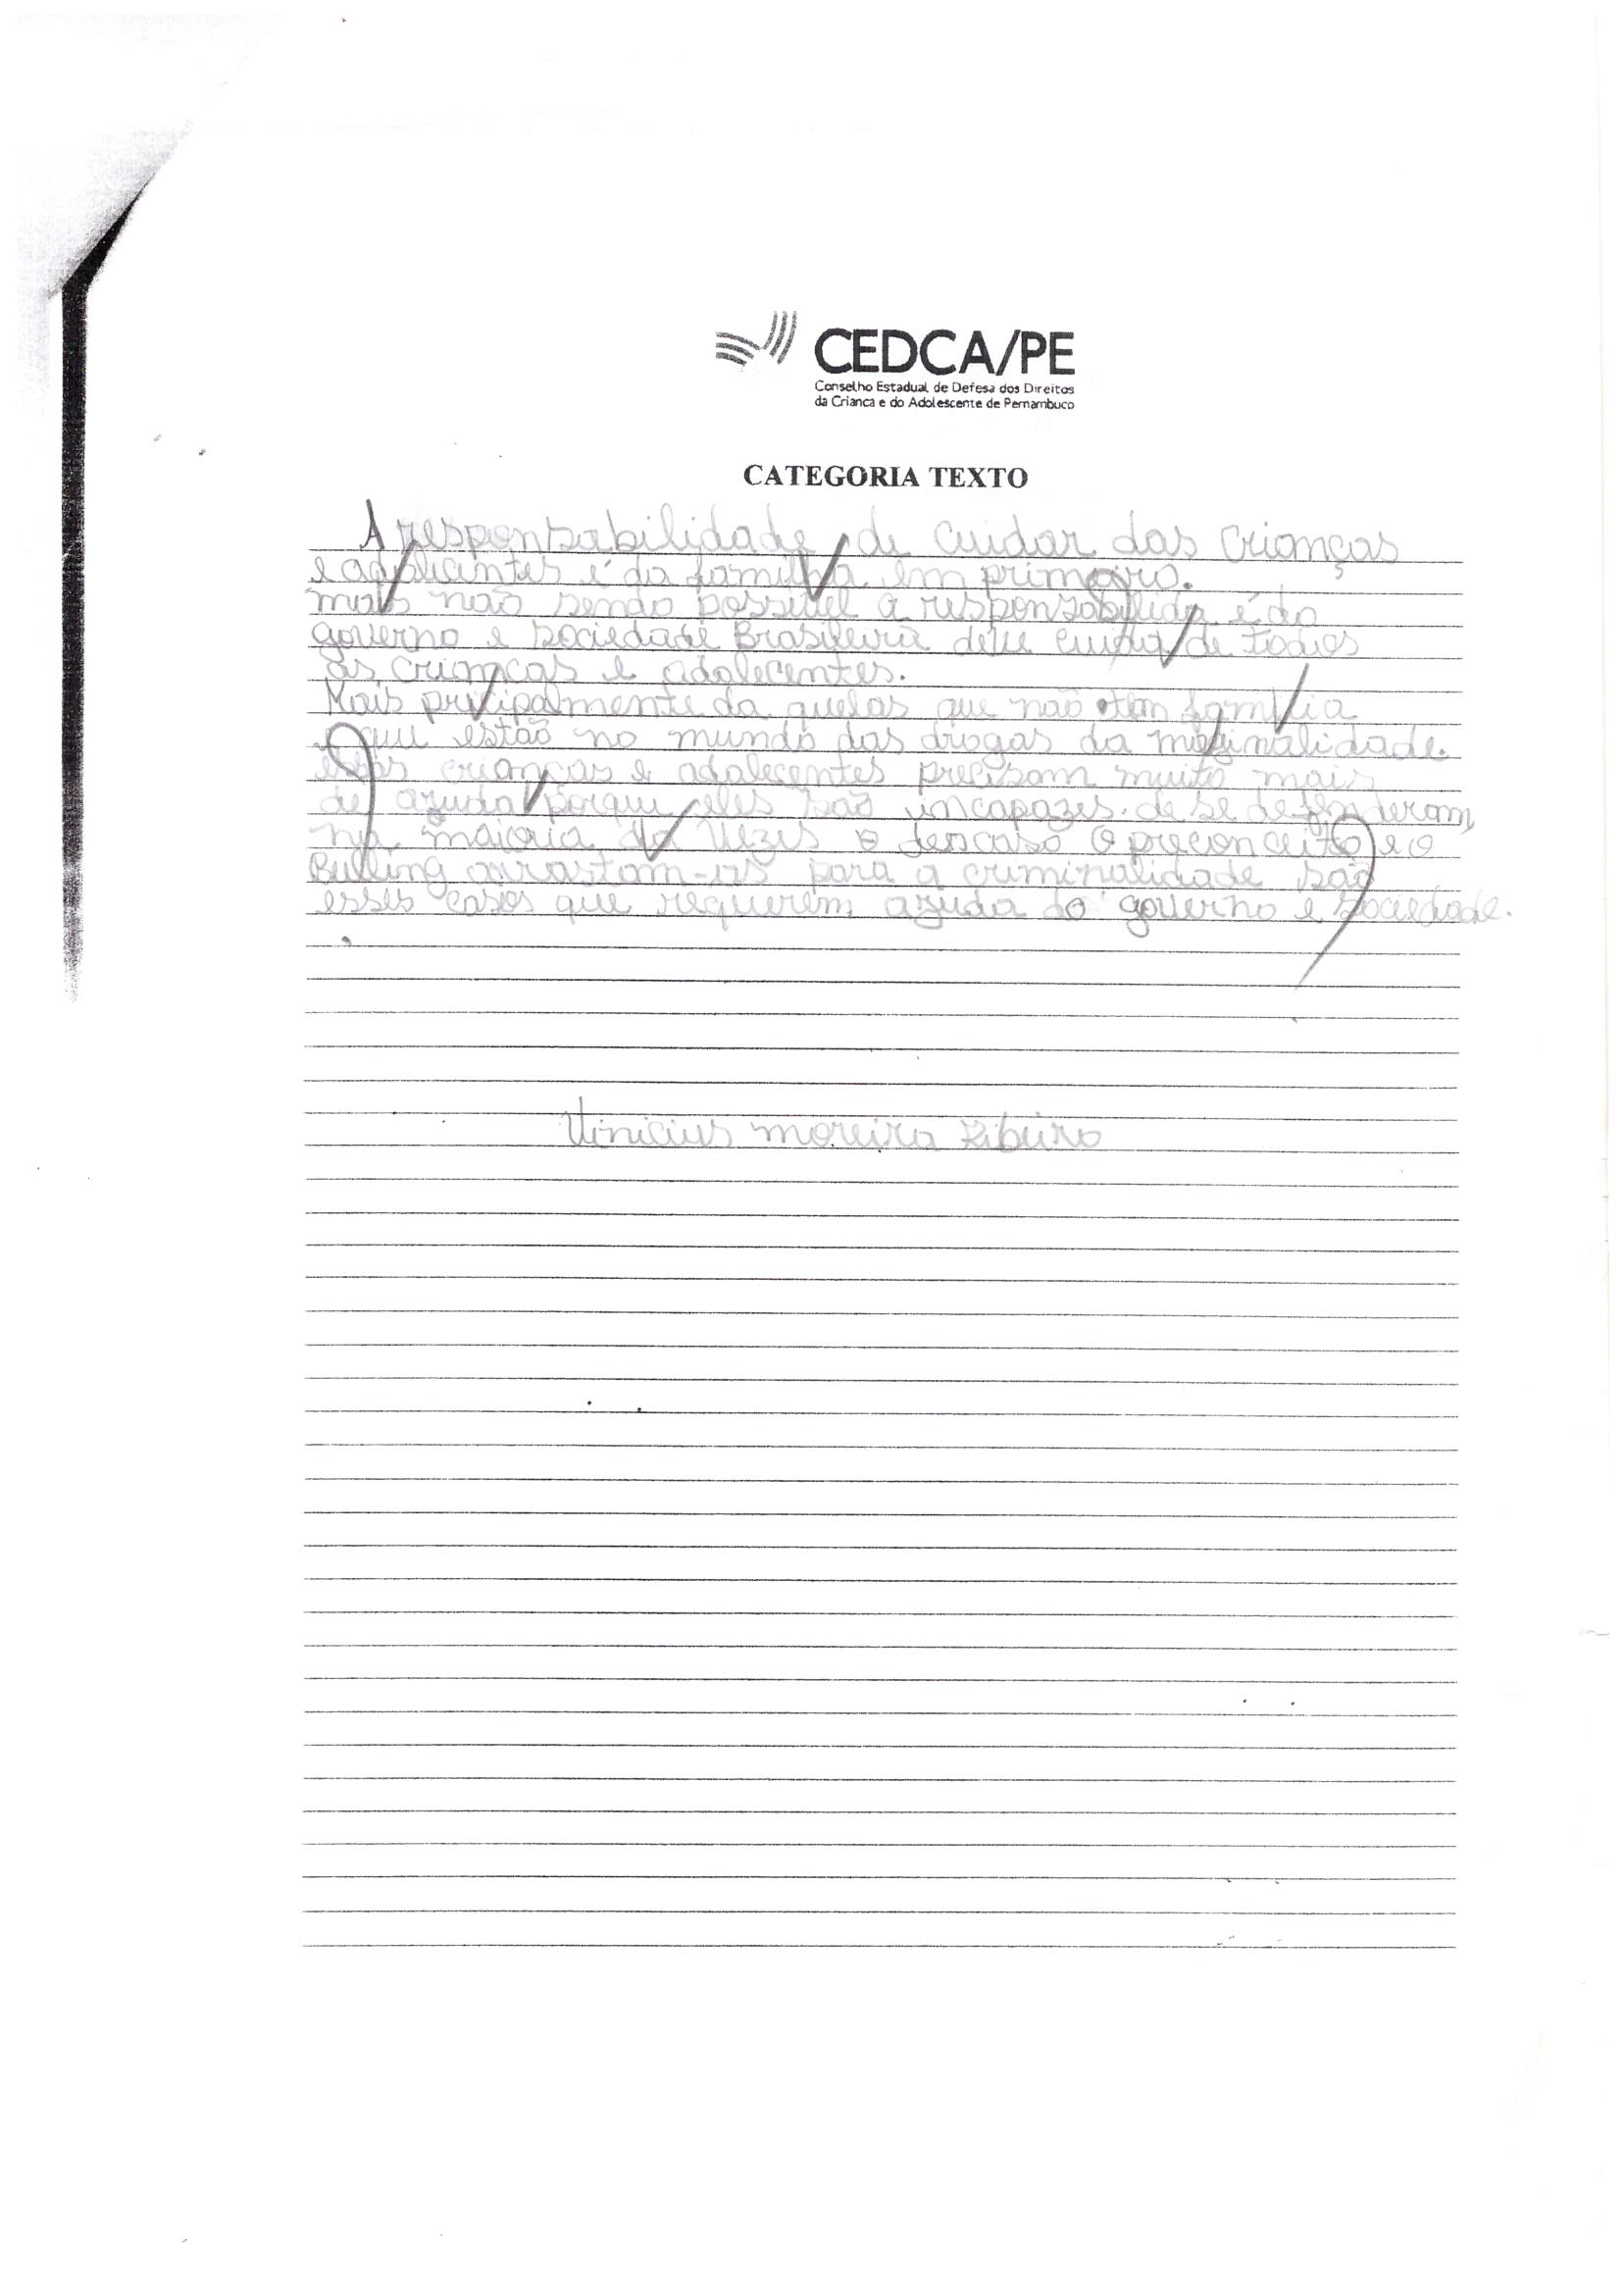 CEDCA/PE
Conselho Estadual de Defesa dos Direitos
da Crianca e do Adolescente de Pernambuco
CATEGORIA TEXTO
A responsabilidade de cuidar das crianças
e é da familia em primeiro.
mais não sendo possivel a é do
governo e sociedade Brasileira deve de todos
as crianças e adolecentes.
Mais da quelas que não tem familia
que estão no mundo das drogas da
crianças e adolecentes precisam muito mais
de ajuda porque eles são incapazes de se defenderam,
na maioria da vezes o descaso o preconceito e o
Bulling arrastam-us para a criminalidade são
esses casos que requerem ajuda do governo e sociedade.
Vinicius moreira Ribeiro